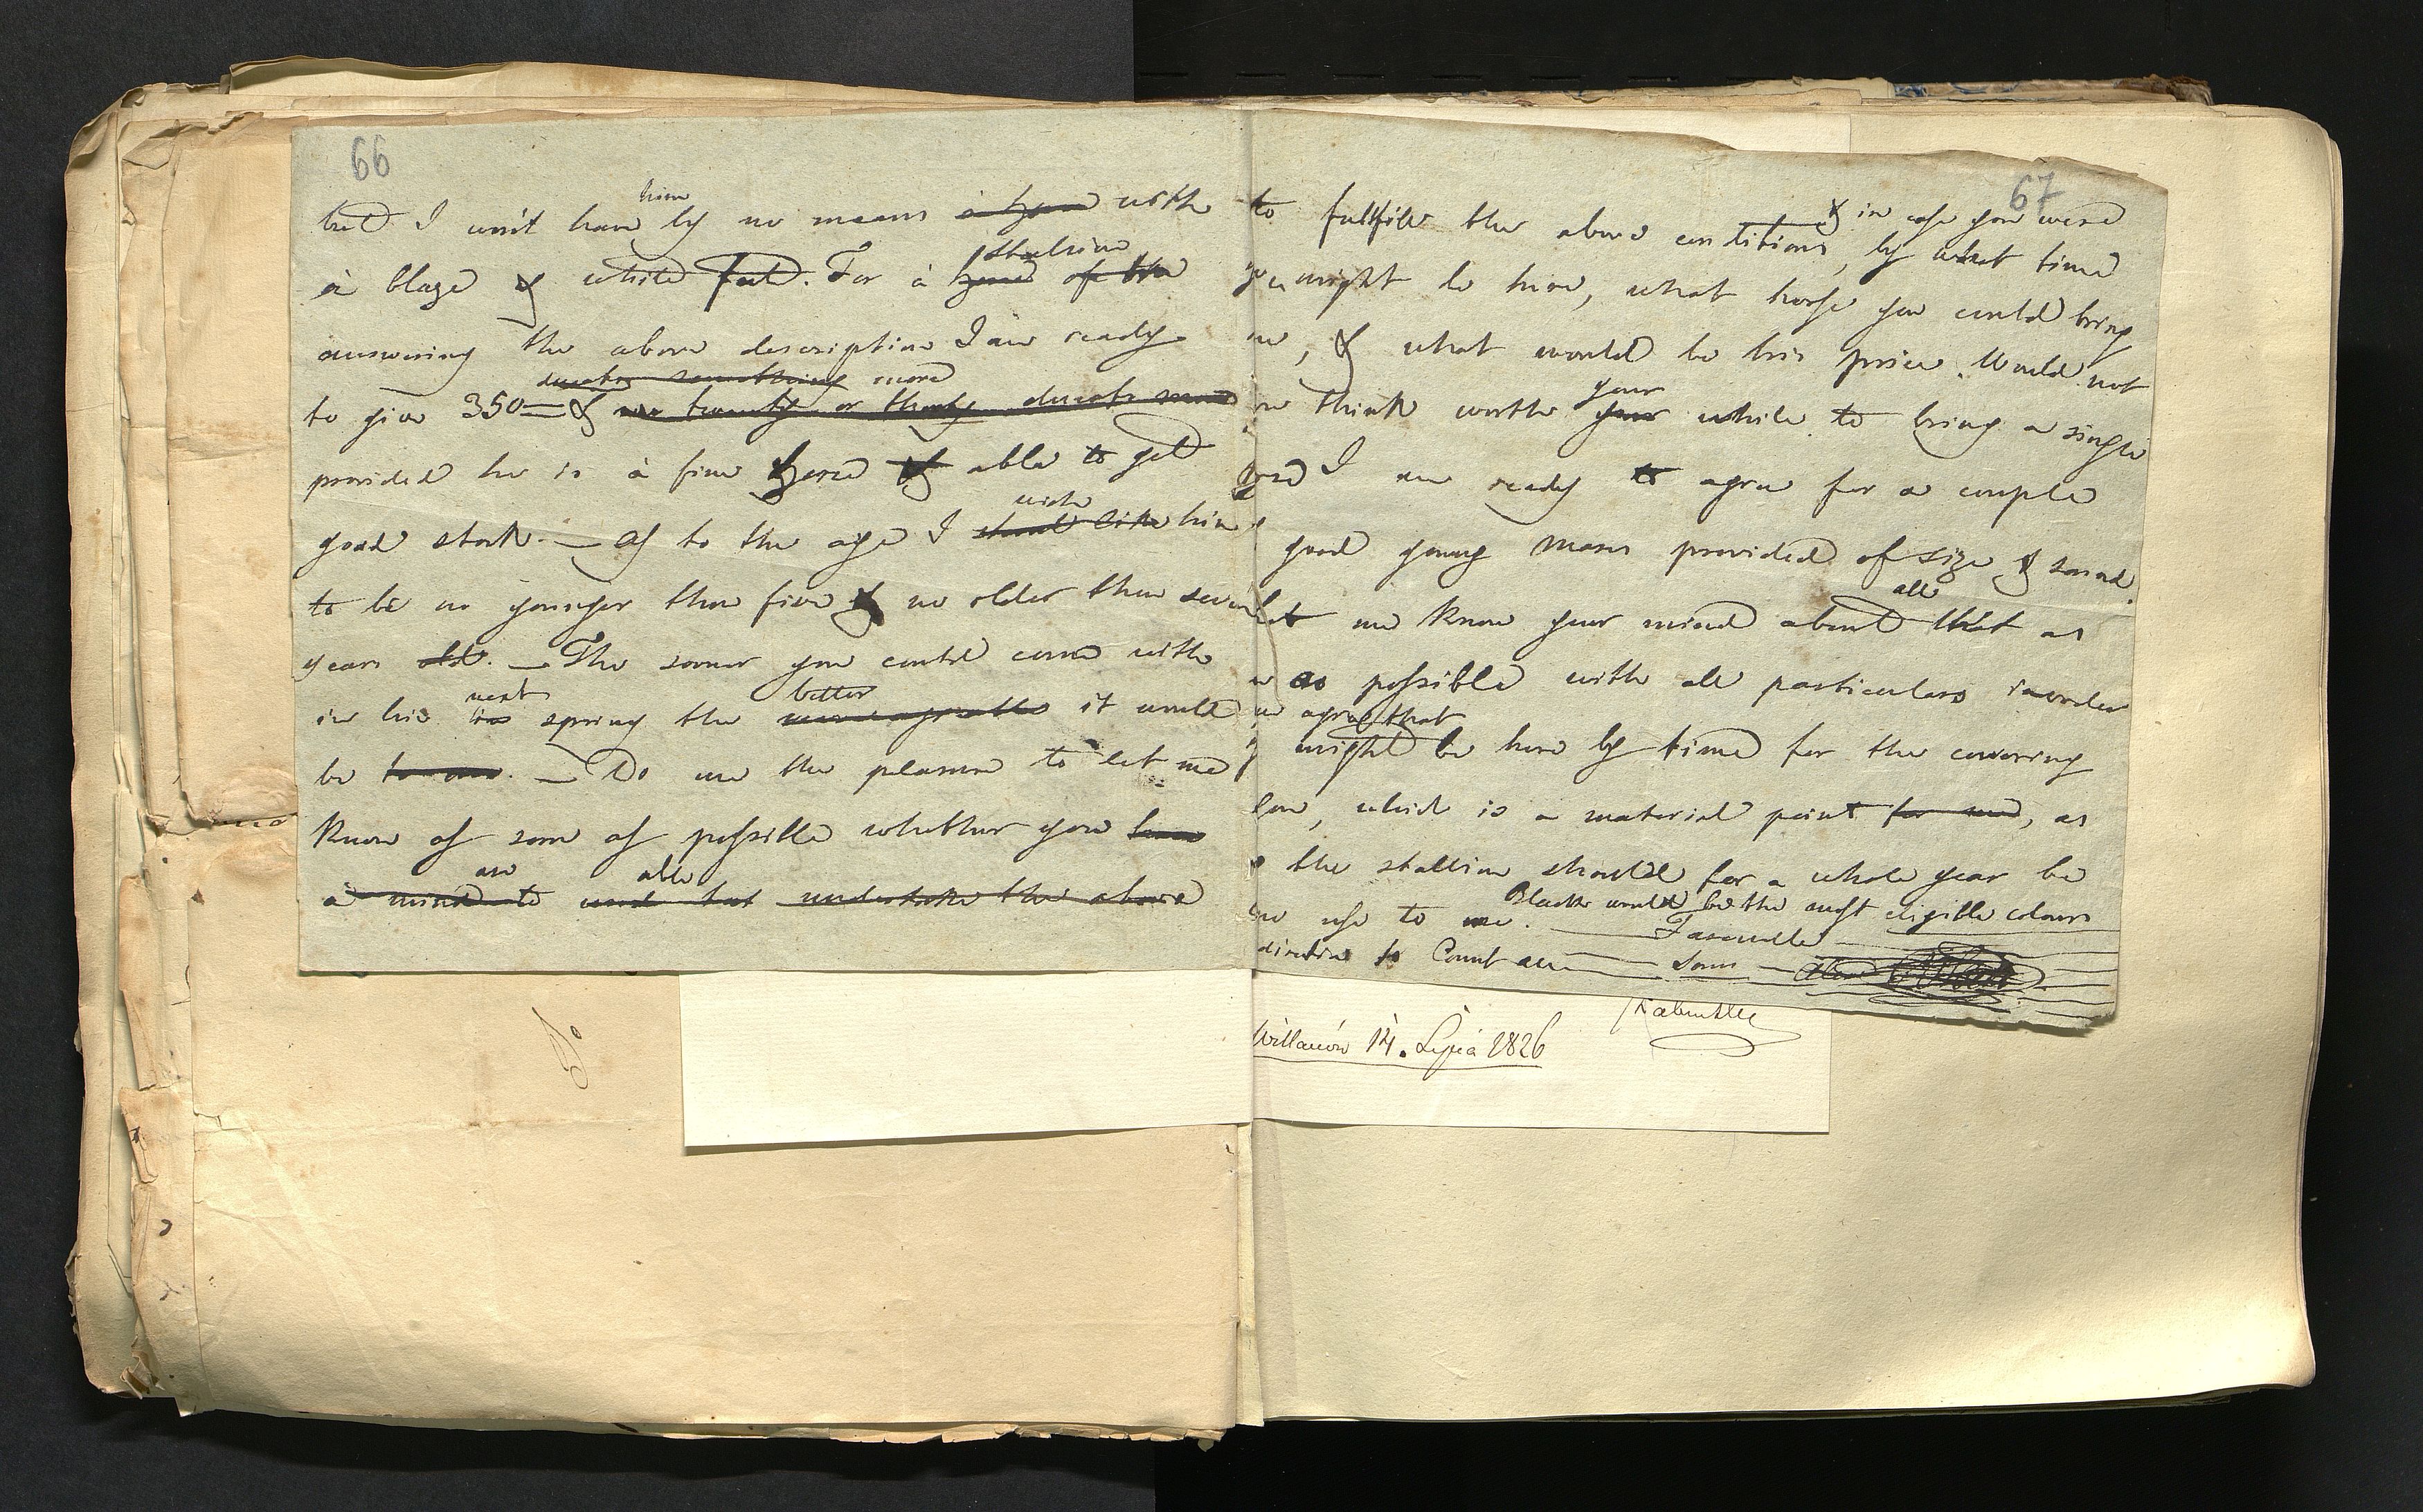 66
him
but I won't have by no means a horse with
a blaze & white feet. For a horse of the
stalion
answering the above description I am ready
ducats something more
to give 350 & twenty or thirty ducats more
provided he is à fine horse & able to get
good stock. — as to the age I shoud like him
wish
to be no younger than five & no older than seven
years old. — The sooner you could come with
next better
in his this spring the more agreable it would
be to me. — Do me the pleasure to let me
know as soon as possible whether you have
are able
a mind to undertake the above
67
& in case you were
to fullfill the above conditions, by what time
you might be here, what horse you could bring
me, & what would be his price. Would not
your
think worth your while to bring a single
I am ready to agree for a couple
good young mares provided of size & sound.
all
let me know your mind about that as
as possible with all particulars inorder
agree that
might be here by time for the covering
which is a material point for me, as
the stallion should for a whole year be
Black would be the most eligible colour
no use to me. Farewell
direction to Count
Willanów 14. Lipca 1826